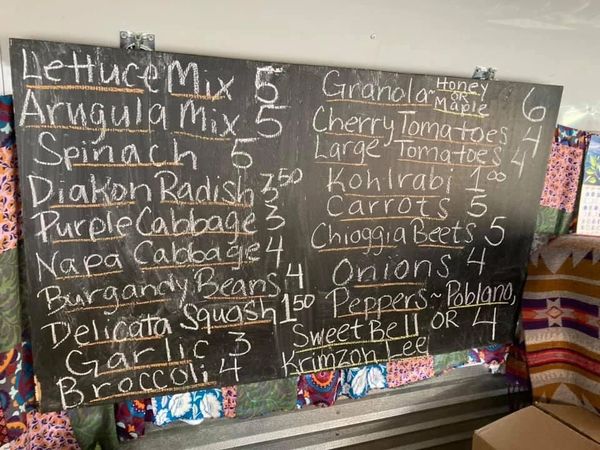 Lettuce Mix 5
Arugula Mix 5
Spinach 5
Diakon Radish 3.50
Purple Cabbage 3
Napa Cabbage 4
Burgandy Beans 4
Delicata Squash 1.50
Garlic 3
Broccoli 4
Granola~ Honey or Maple 6
Cherry Tomatoes 4
Large Tomatoes 4
Kohlrabi 1.00
Carrots 5
Chioggia Beets 5
Onions 4
Peppers~ Poblano,
Sweet Bell OR 4
Krimzon Lee